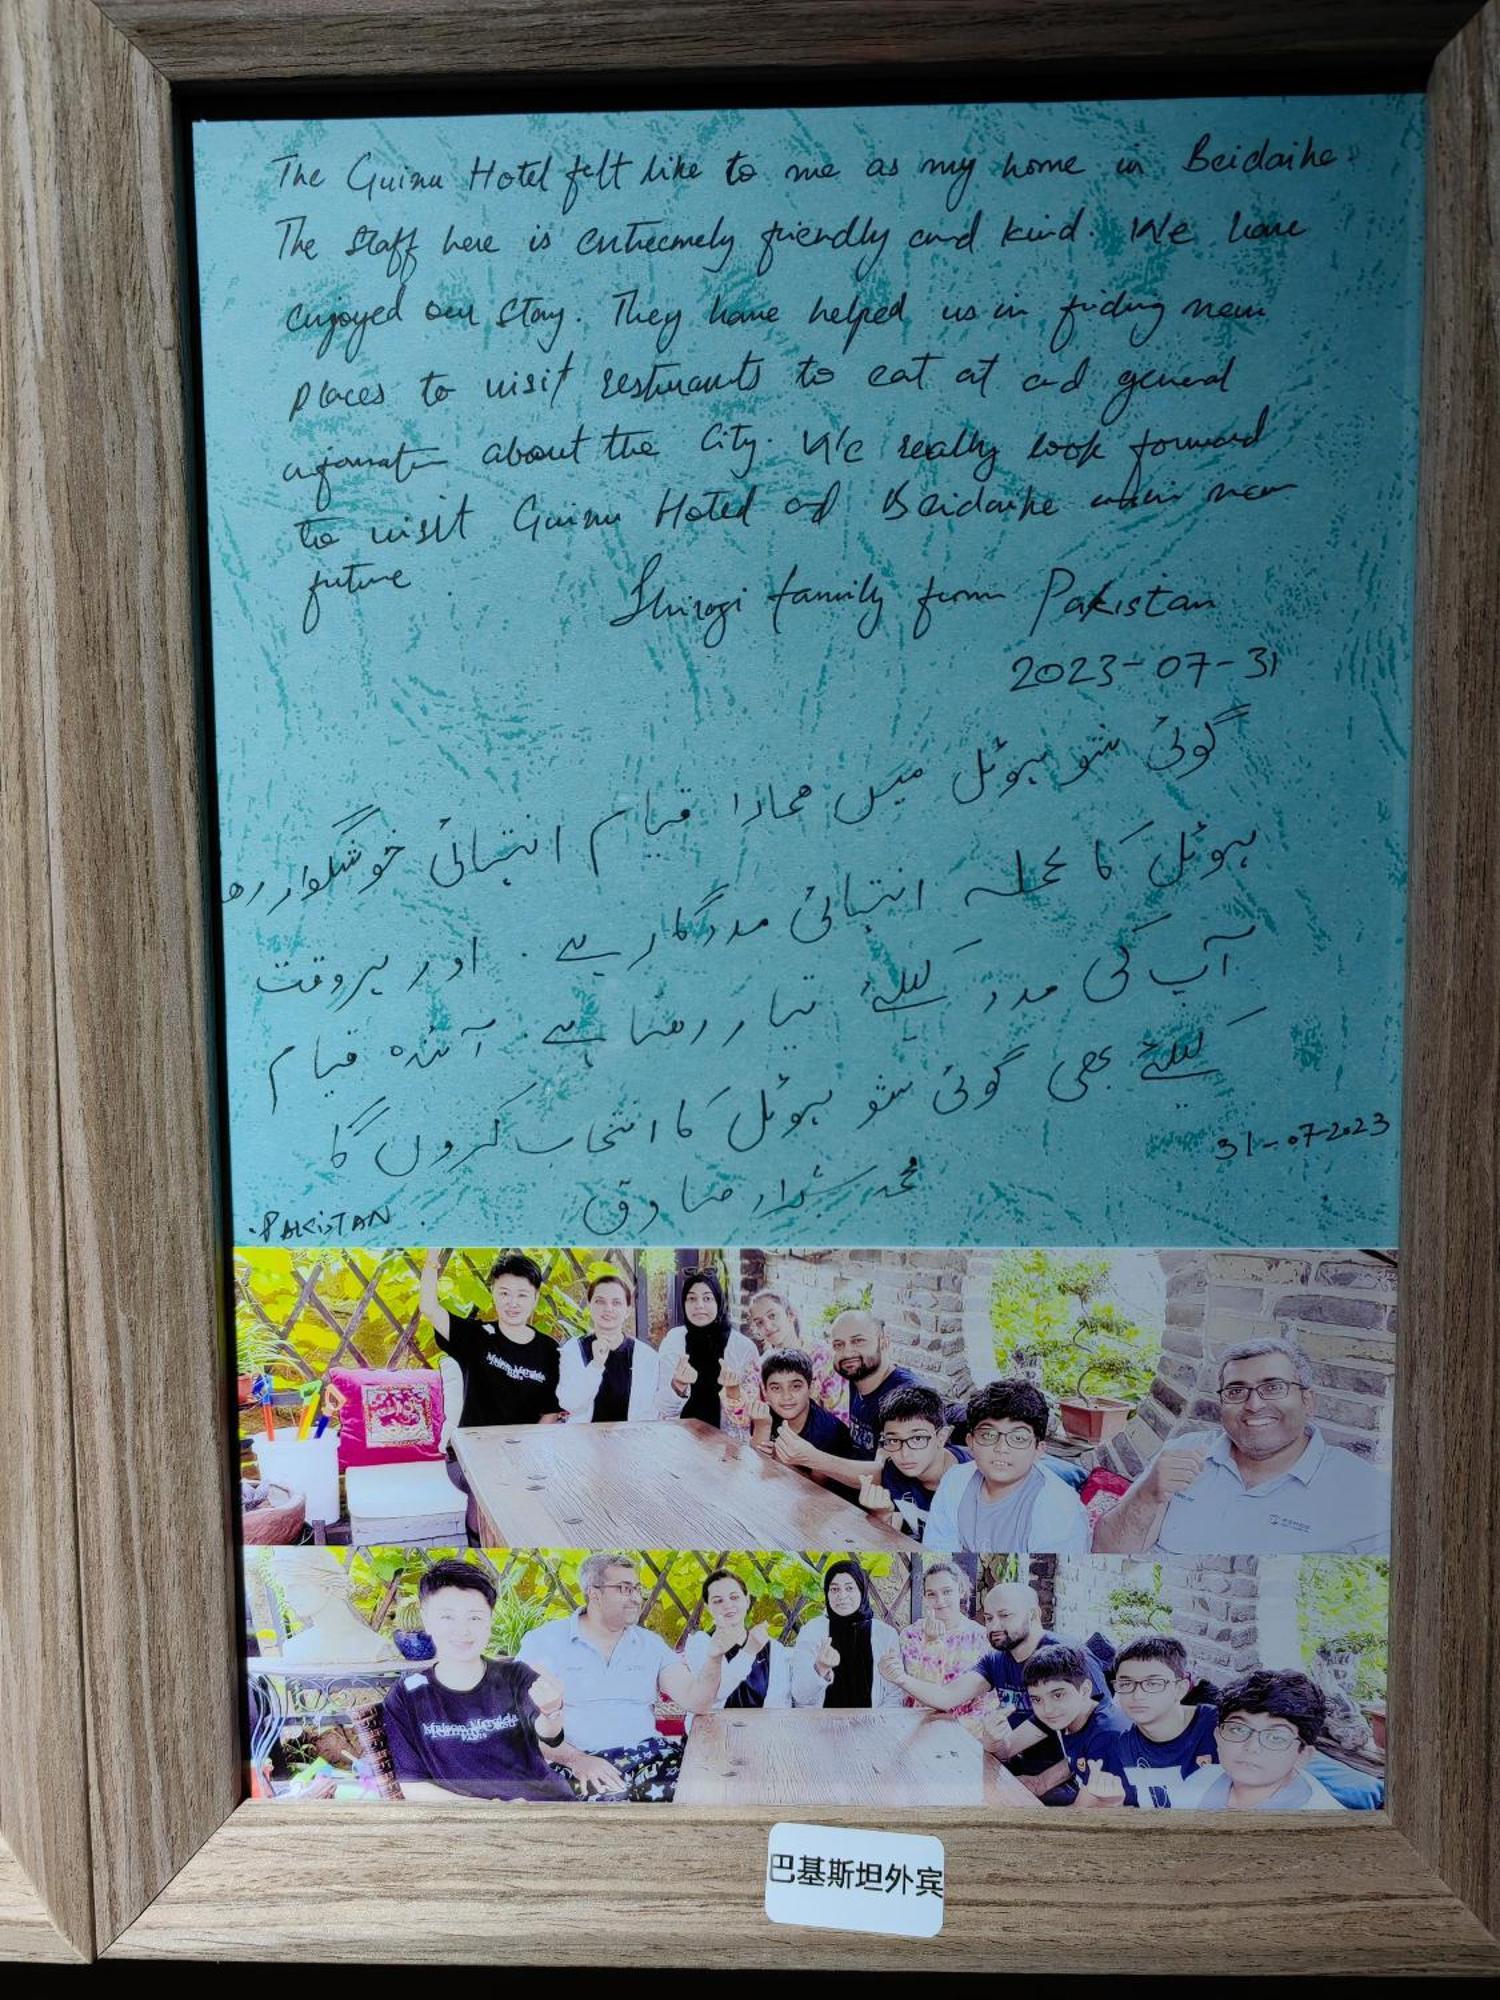 The Guinu Hotel felt like to me as my home in Beidaihe
The Staff here is extremely friendly and kind. We have
enjoyed our stay. They have helped us in fiding new
places to visit resturants to eat at and general
information about the City. We really look forward
to visit Guinu Hotel ad Beidaihe in near
future
family from Pakistan
2023-07-31
گوئی شو ہوٹل میں ھمارا قیام انتہائی خوشگوار رھا
ہوٹل کا عملہ انتہائی مددگار ہے۔ اور ہروقت
آپ کی مدد کیلئے تیار رھتا ہے۔ آئندہ قیام
کیلئے بھی گوئی شو ہوٹل کا انتخاب کروں گا
31-07-2023
محمد صادق
PAKISTAN
巴基斯坦外宾